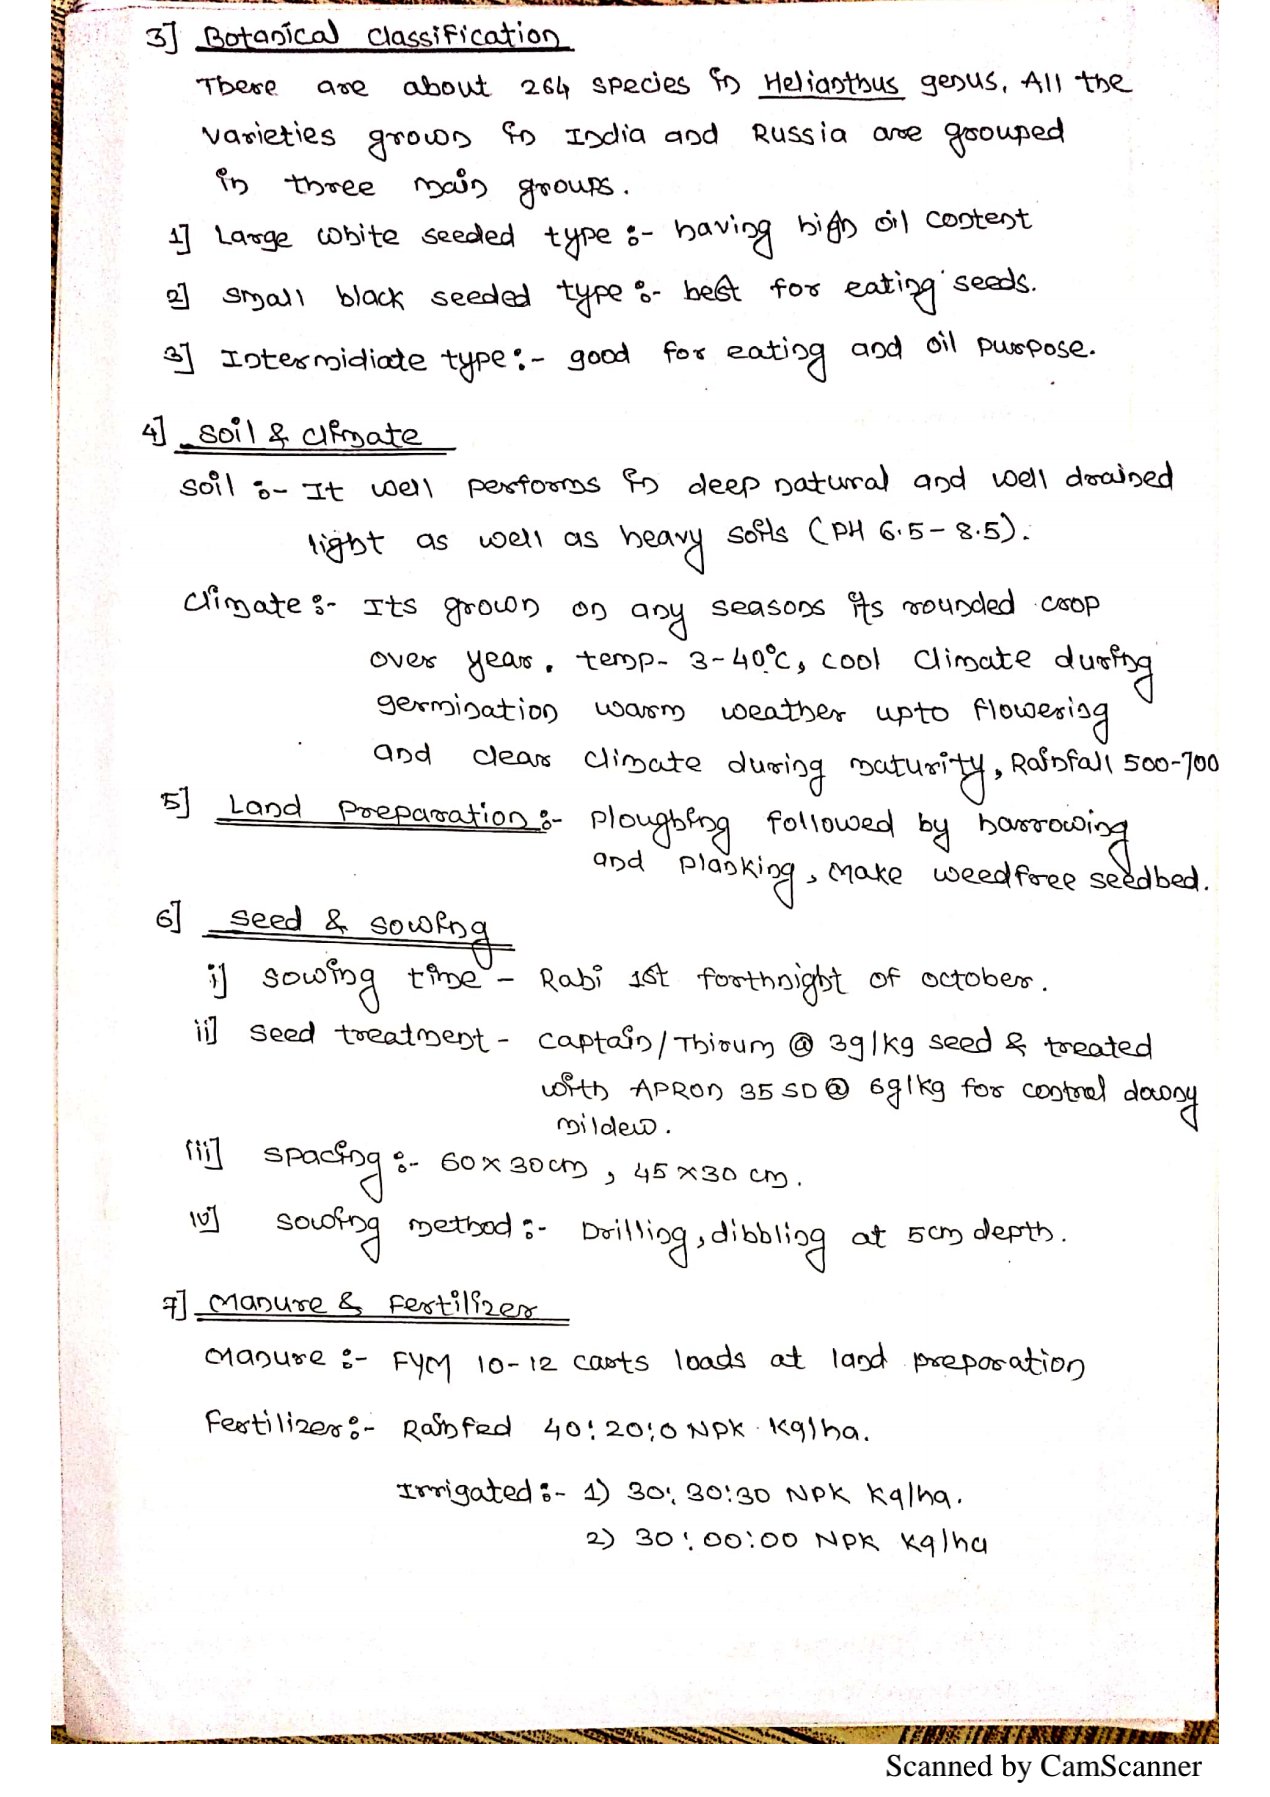 3] Botanical Classification
There are about 264 species in Helianthus genus. All the
varieties grown in India and Russia are grouped
in three main groups.
1] Large white seeded type :- having high oil content
2] Small black seeded type :- best for eating seeds.
3] Intermidiate type :- good for eating and oil purpose.
4] Soil & climate
Soil :- It well performs in deep natural and well drained
light as well as heavy soils (PH 6.5-8.5).
Climate :- Its grown on any seasons its rounded crop
over year. temp- 3-40°C, cool climate during
germination warm weather upto flowering
and clear climate during maturity, Rainfall 500-700
5] Land Preparation :- Ploughing followed by harrowing
and planking, make weedfree seedbed.
6] Seed & Sowing
i] Sowing time - Rabi 1st forthnight of October.
ii] Seed treatment - Captain/Thirum @ 3g/kg seed & treated
with APRON 35 SD @ 6g/kg for control dawny
mildew.
iii] Spacing :- 60x30cm, 45x30 cm.
iv] Sowing method :- Drilling, dibbling at 5cm depth.
7] Manure & Fertilizer
Manure :- FYM 10-12 carts loads at land preparation
Fertilizer :- Rainfed 40:20:0 NPK Kg/ha.
Irrigated :- 1) 30:30:30 NPK Kg/ha.
2) 30:00:00 NPK Kg/ha
Scanned by CamScanner